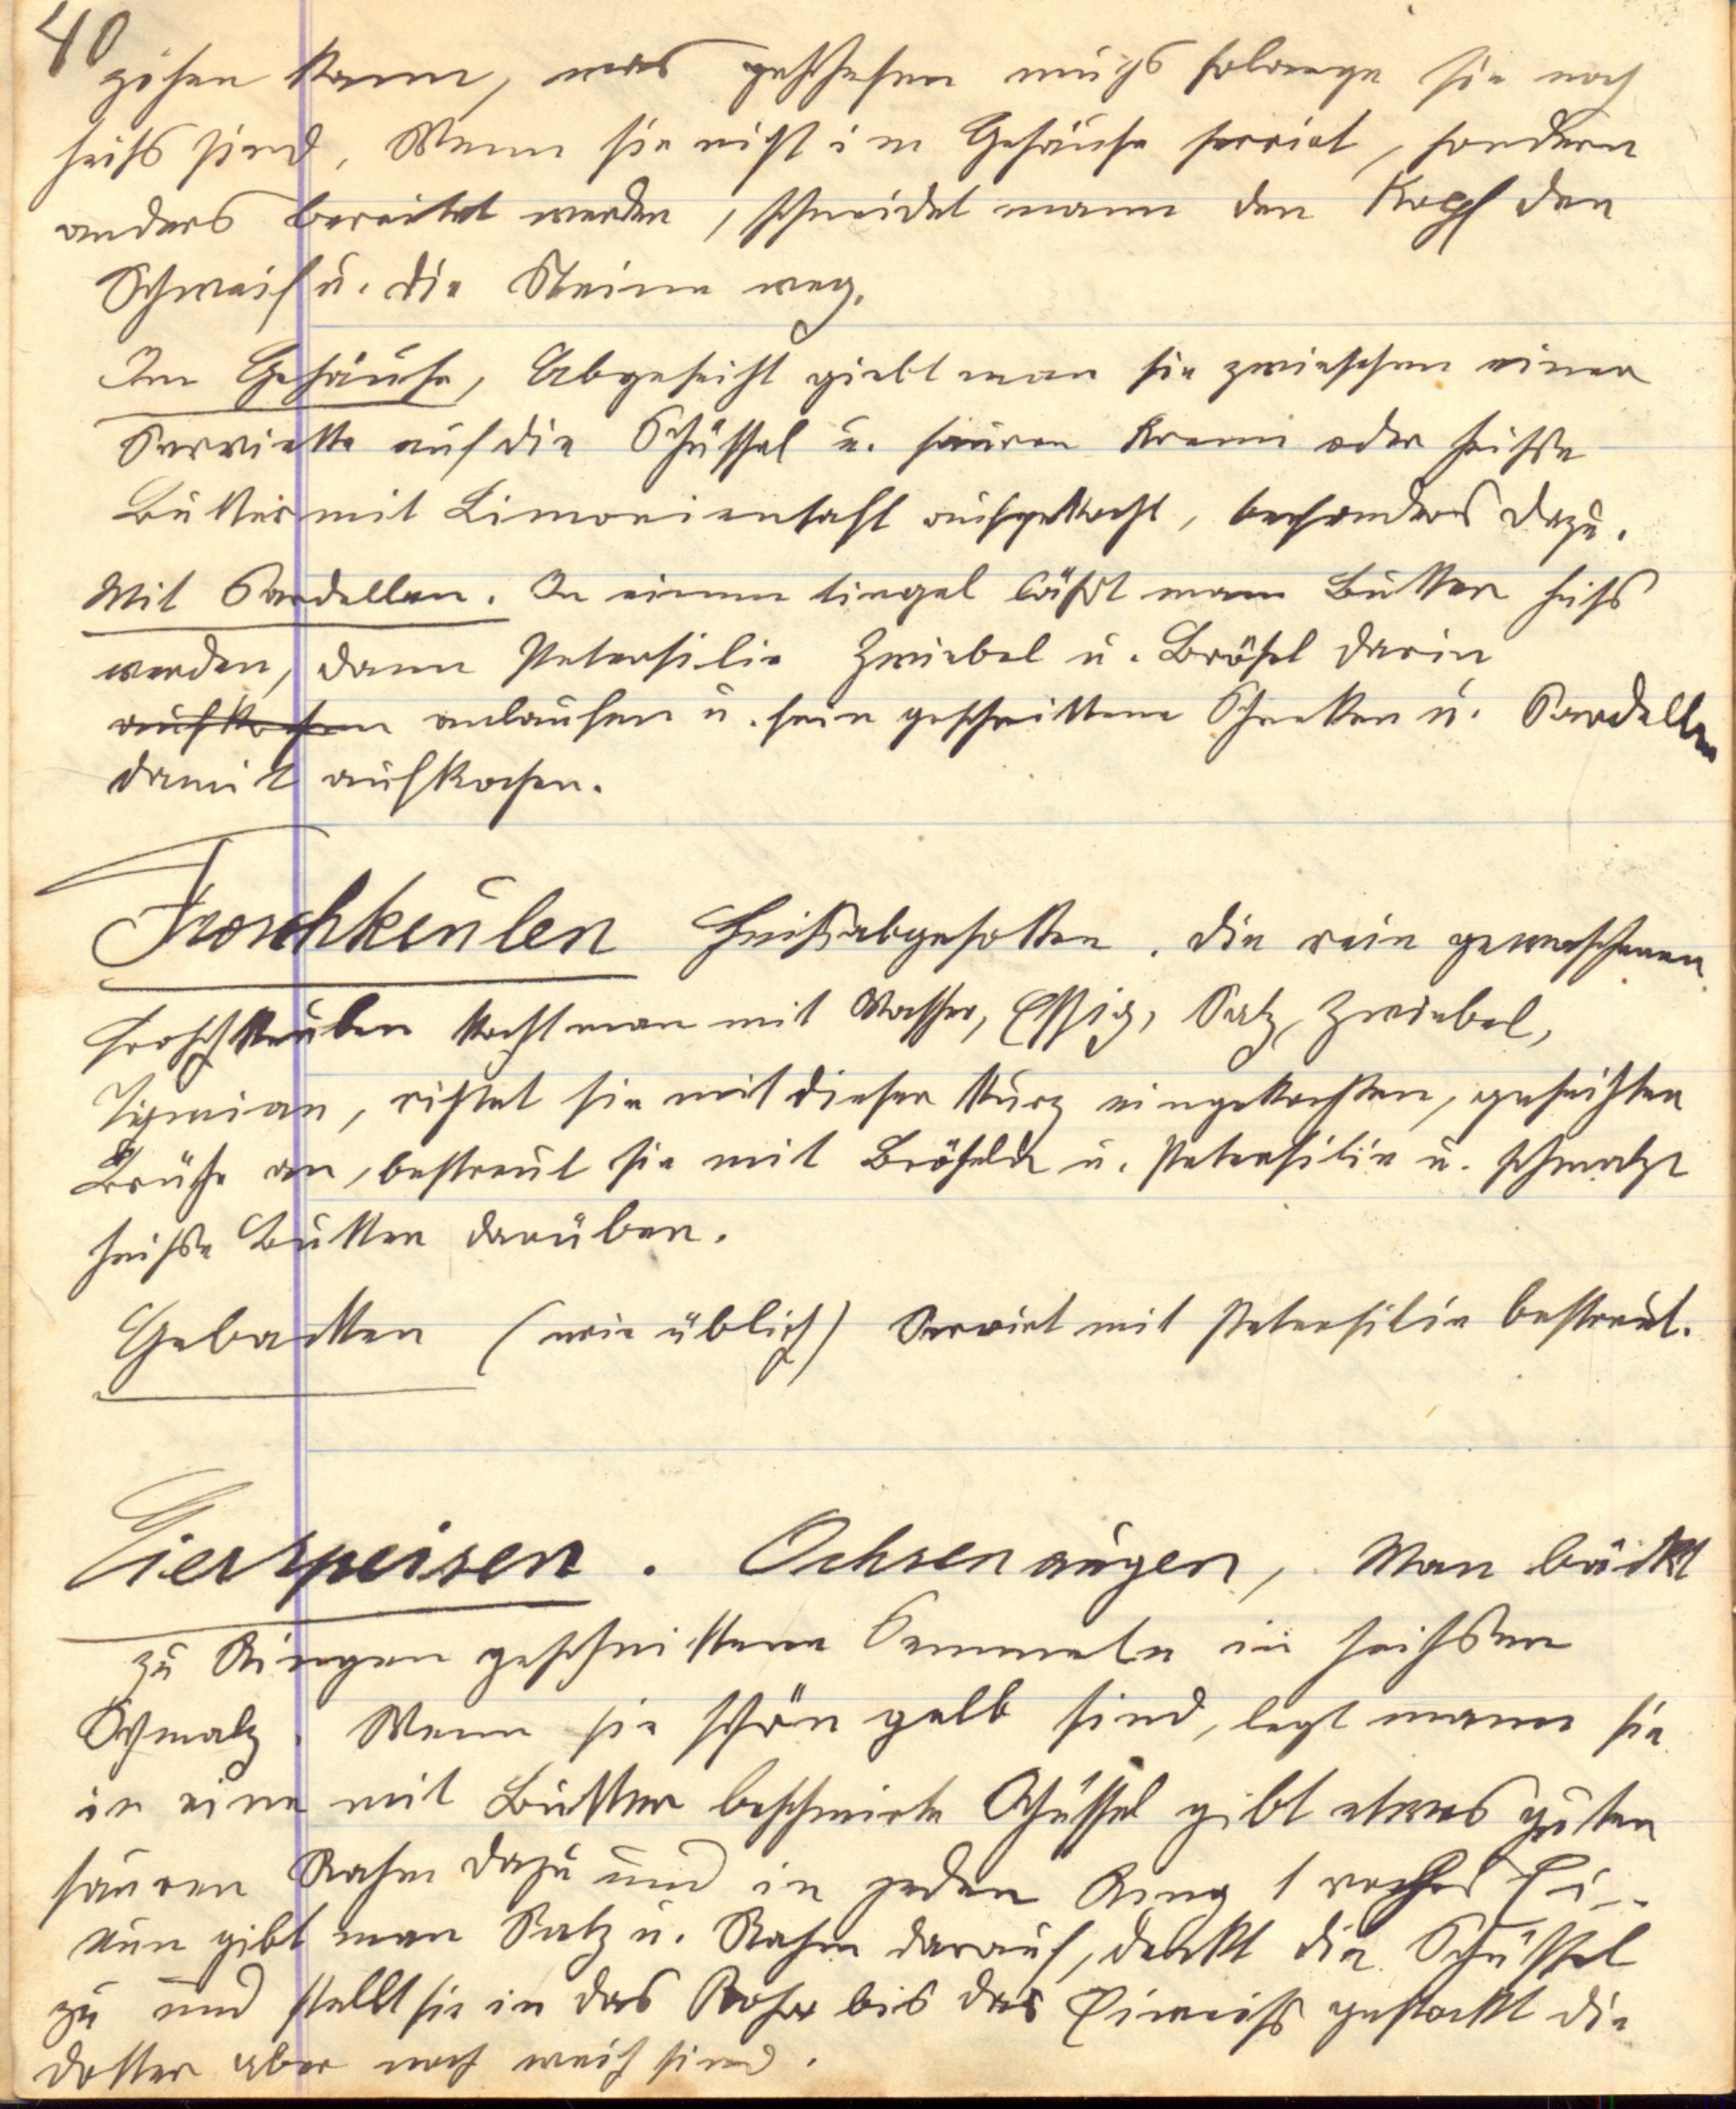 40
ziehen kann, was geschehen muss solange sie noch
heiss sind. Wenn sie nicht im Gehäuse servirt, sondern
anders bereitet werden, schneidet mann den Kopf den
Schweif u. die Steine weg.
Im Gehäuse, Abgeseiht giebt man sie zwieschen einer
Serviette auf die Schüssel u. sauren Krenn oder heisse
Butter mit Limoniensaft aufgekocht, besonders dazu.
Mit Sardellen. In einem tiegel lässt man Butter heiss
werden, dann Petersilie Zwiebel u. Brösel darin
aufkochen anlaufen u. fein geschnittene Schneken u. Sardellen
damit aufkochen.
Froschkeulen Heissabgesotten. die rein gewaschenen
Froschkeulen kocht man mit Wasser, Essig, Salz, Zwiebel,
Tigmian, richtet sie mit dieser kurz eingekochten, geseihten
Brühe an, bestreut sie mit Bröseln u. Petersilie u. schmalzt
heisse Butter darüber.
Gebacken (wie üblich) Servirt mit Petersilie bestreut.
Eierspeisen. Ochsenaugen, Man bäckt
zu Ringen geschnittene Semmeln in heissem
Schmalz. Wenn sie schön gelb sind, legt mann sie
in eine mit Butter beschmirte Schüssel gibt etwas guten
sauren Rahm dazu und in jeden Ring 1 rohes Ei..
nun gibt man Salz u. Rahm darauf, deckt die Schüssel
zu und stellt sie in das Rohr bis das Eiweiss gestockt die
dotter aber noch weich sind.